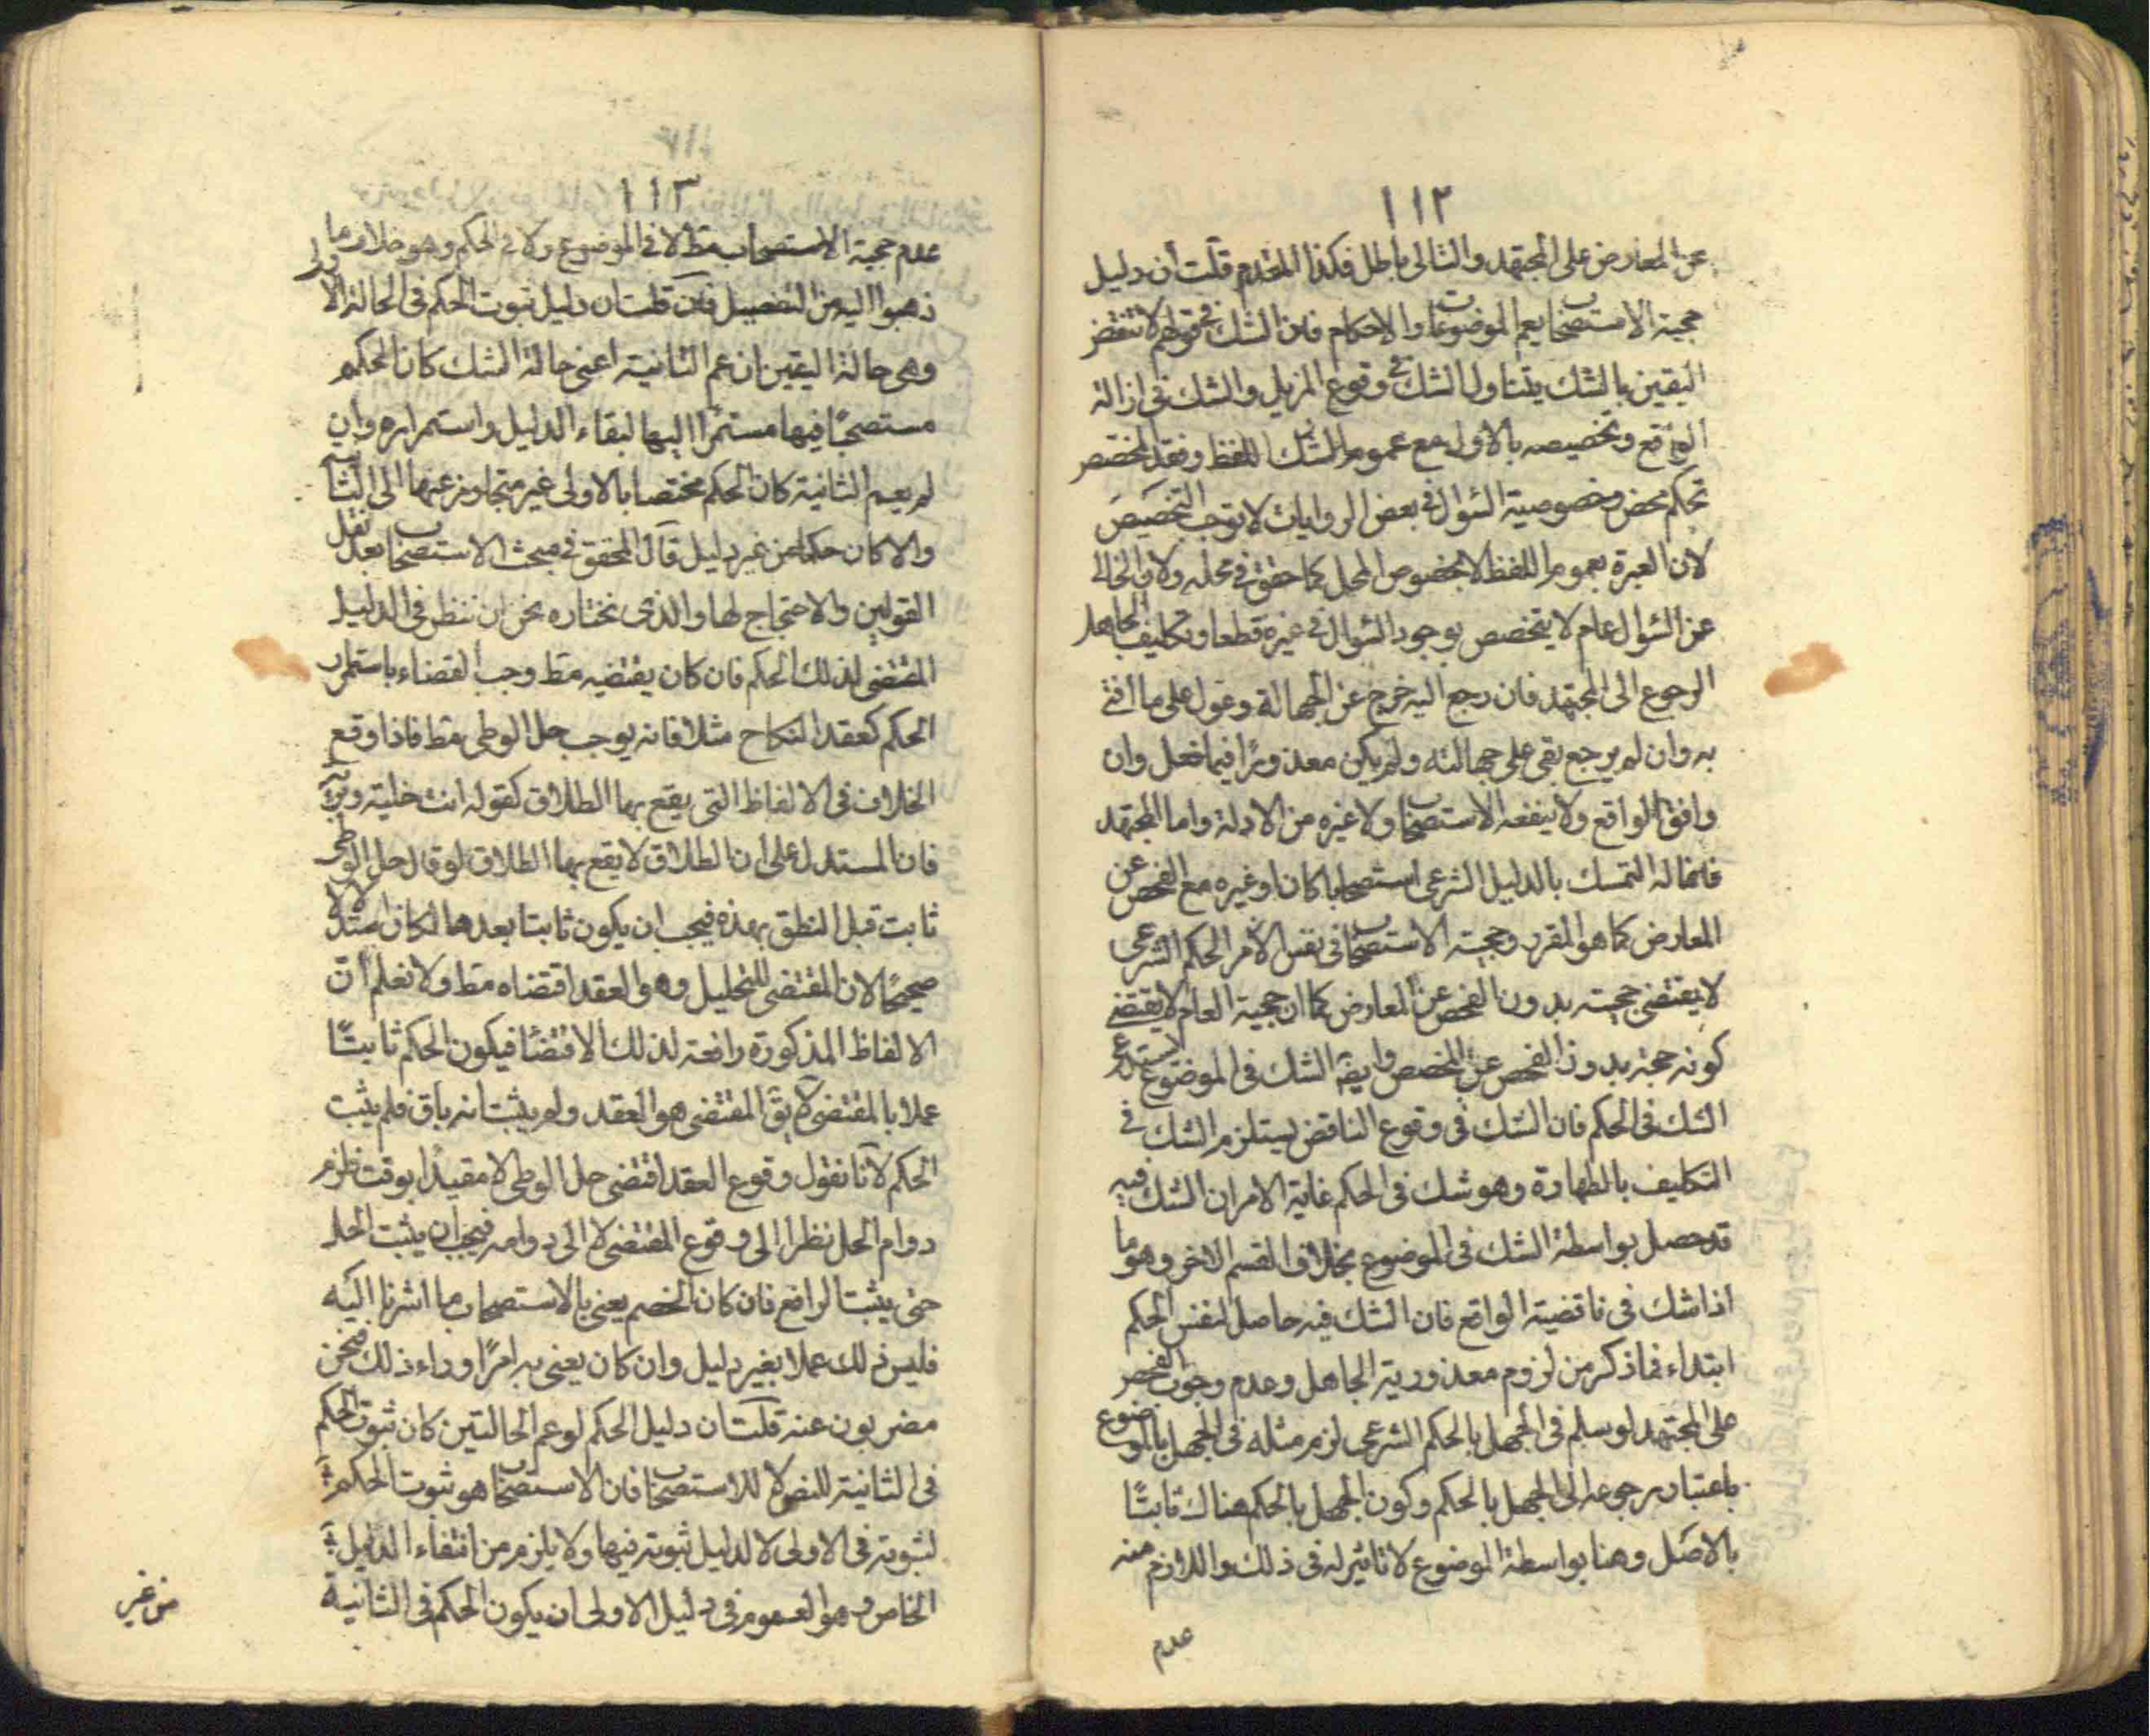 ١١٢
عن المعارض على المجتهد والتالى باطل فكذا المقدم قلت أن دليل
حجية الاستصحاب يعم الموضوعات والاحكام فان الشك في قولهم لا تنقض
اليقين بالشك يتناول الشك في وقوع المزيل والشك فى ازالة
الواقع وتخصيصه بالاول مع عموم الشك للفظ وفقد المخصص
تحكم محض وخصوصية السؤال في بعض الروايات لا توجب التخصيص
لان العبرة بعموم اللفظ لا بخصوص المحل كما حقق في محله ولان الخالي
عن السؤال عام لا يتخصص بوجود السؤال في غيره قطعا وتكليف الجاهل
الرجوع الى المجتهد فان رجع اليه خرج عن الجهالة وعول على ما افتى
به وان لم يرجع بقى على جهالته ولم يكن معذورًا فيما فعل وان
وافق الواقع ولا ينفعه الاستصحاب ولا غيره من الادلة واما المجتهد
فانما له التمسك بالدليل الشرعى استصحابا كان او غيره مع الفحص عن
المعارض كما هو المقرر وحجية الاستصحاب فى نفس الامر الحكم الشرعى
لا يقتضى حجيته بدون الفحص عن المعارض كما ان حجية العام لا يقتضى
كونه حجة بدون الفحص عن المخصص وايضا الشك فى الموضوع يستدعى
الشك فى الحكم فان الشك فى وقوع الناقض يستلزم الشك في
التكليف بالطهارة وهو شك فى الحكم غاية الامر ان الشك فيه
قد حصل بواسطة الشك فى الموضوع بخلاف القسم الاخر وهو ما
اذا شك فى ناقضية الواقع فان الشك فيه حاصل لنفس الحكم
ابتداء فما ذكر من لزوم معذورية الجاهل وعدم وجوب الفحص
على المجتهد لو سلم فى الجهل بالحكم الشرعى لزم مثله فى الجهل بالموضوع
باعتبار رجوعه الى الجهل بالحكم وكون الجهل بالحكم هناك ثابتًا
بالاصل وهنا بواسطة الموضوع لا تاثير له فى ذلك واللازم منه
عدم
١١٣
عدم حجية الاستصحاب مط لا فى الموضوع ولا في الحكم وهو خلاف ما
ذهبوا اليه من التفصيل فان قلت ان دليل ثبوت الحكم فى الحالة الاولى
وهى حالة اليقين ان عم الثانية اعنى حالة الشك كان الحكم
مستصحبًا فيها مستمرًا اليها لبقاء الدليل واستمراره وان
لم يعم الثانية كان الحكم مختصا بالاولى غير متجاوز عنها الى الثانية
والا كان حكما من غير دليل قال المحقق في مبحث الاستصحاب بعد نقل
القولين والاحتجاج لها والذى نختاره نحن ان ننظر فى الدليل
المقتضى لذلك الحكم فان كان يقتضيه مط وجب القضاء باستمرار
الحكم كعقد النكاح مثلا فانه يوجب حل الوطى مط فاذا وقع
الخلاف فى الالفاظ التى يقع بها الطلاق كقوله انت خلية وبرية
فان المستدل على ان الطلاق لا يقع بها الطلاق لو قال حل الوطى
ثابت قبل النطق بهذه فيجب ان يكون ثابتا بعدها لكان استدلالا
صحيحًا لان المقتضى للتحليل وهو العقد اقتضاه مط ولا نعلم أن
الالفاظ المذكورة رافعة لذلك الاقتضا فيكون الحكم ثابتًا
عملا بالمقتضى لا يق المقتضى هو العقد ولم يثبت انه باق فلم يثبت
الحكم لانا نقول وقوع العقد اقتضى حل الوطى لا مقيدًا بوقت فلزم
دوام الحل نظرا الى وقوع المقتضى لا الى دوامه فيجب ان يثبت الحل
حتى يثبت الرافع فان كان الخصم يعنى بالاستصحاب ما اشرنا اليه
فليس ذلك عملا بغير دليل وان كان يعنى به امرًا وراء ذلك فنحن
مضربون عنه قلت ان دليل الحكم لو عم الحالتين كان ثبوت الحكم
فى الثانية للنص لا للاستصحاب فان الاستصحاب هو ثبوت الحكم
لثبوته فى الاولى لا لدليل ثبوته فيها ولا يلزم من انتفاء الدليل
الخاص وهو العموم فى دليل الاولى ان يكون الحكم فى الثانية
من غير